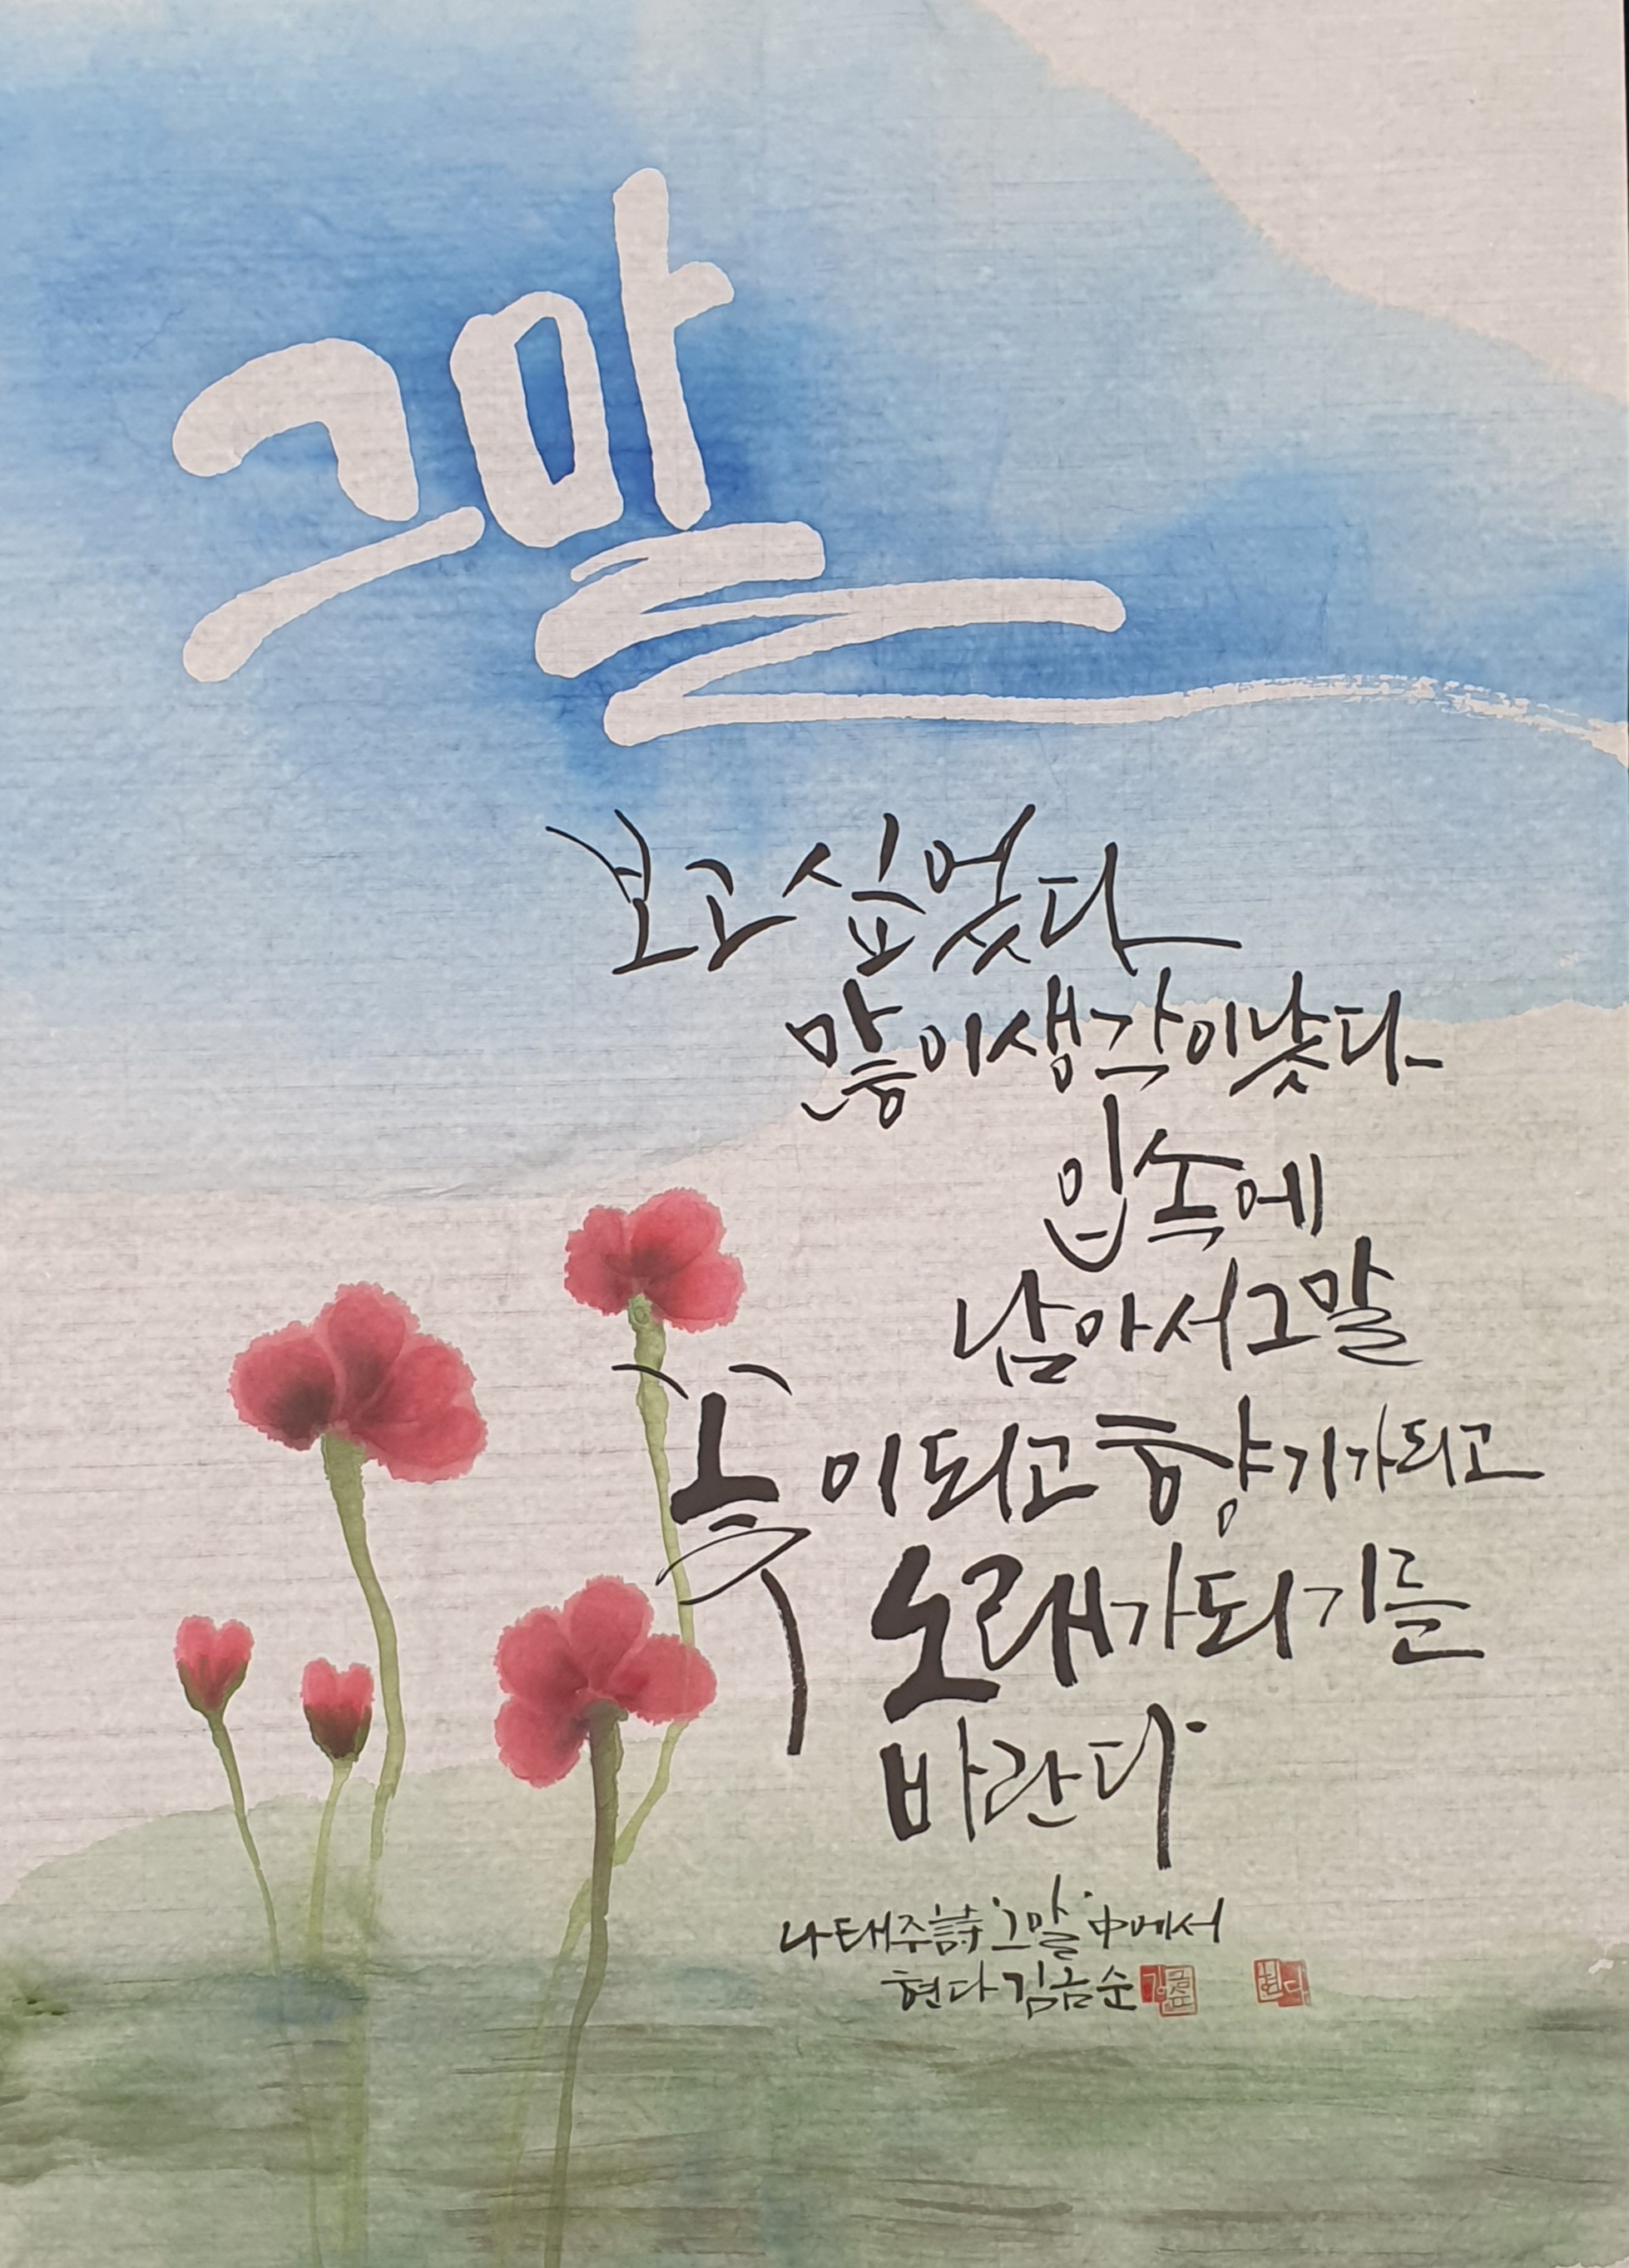 그 말
보고 싶었다
많이 생각이 났다
입 속에
남아서 그 말
꽃이 되고 향기가 되고
노래가 되기를
바란다
나태주 詩 '그말' 中에서
현다 김금순
현다